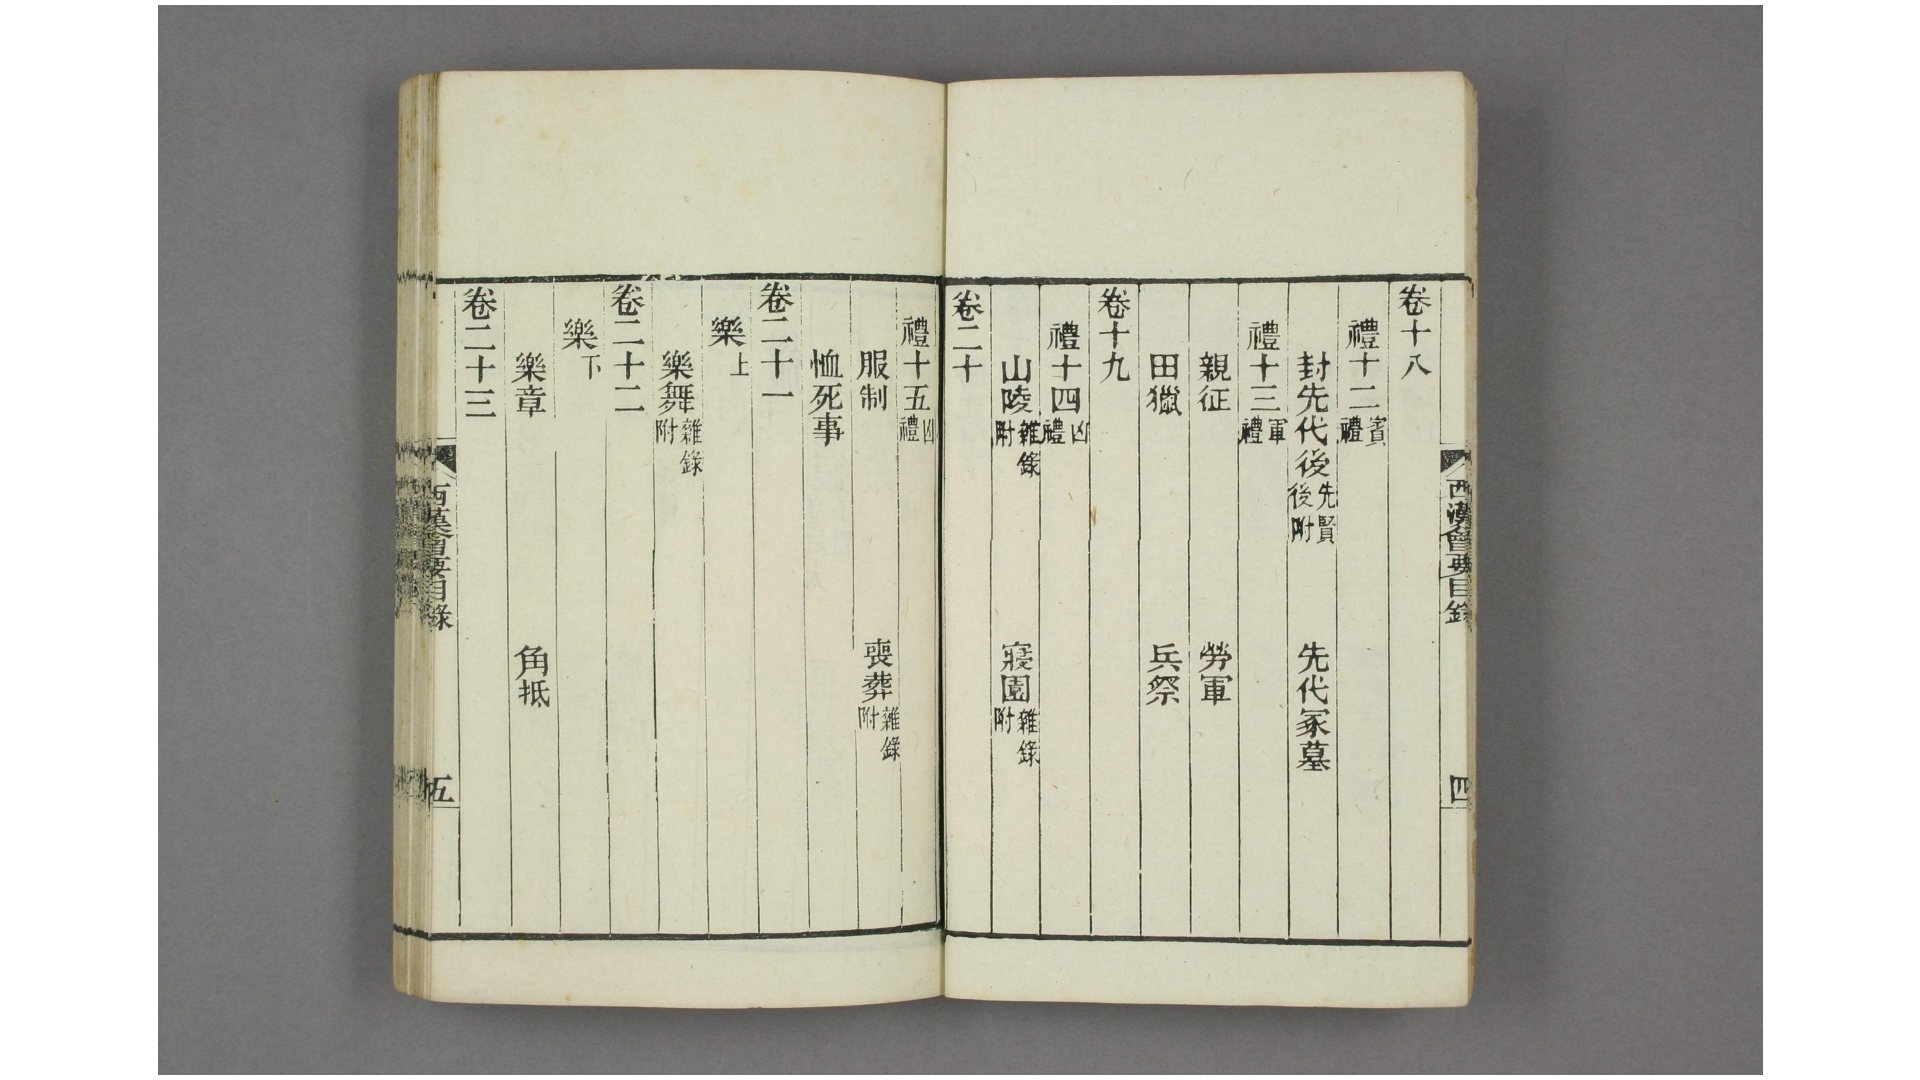 西漢會要目錄
四
卷十八
禮十二 賓禮
封先代後 先賢後附 先代冢墓
禮十三 軍禮
親征 勞軍
田獵 兵祭
卷十九
禮十四 凶禮
山陵 雜錄附 寢園 雜錄附
卷二十
禮十五 凶禮
服制 喪葬 雜錄附
恤死事
卷二十一
樂上
樂舞 雜錄附
卷二十二
樂下
樂章 角抵
卷二十三
西漢會要目錄
五